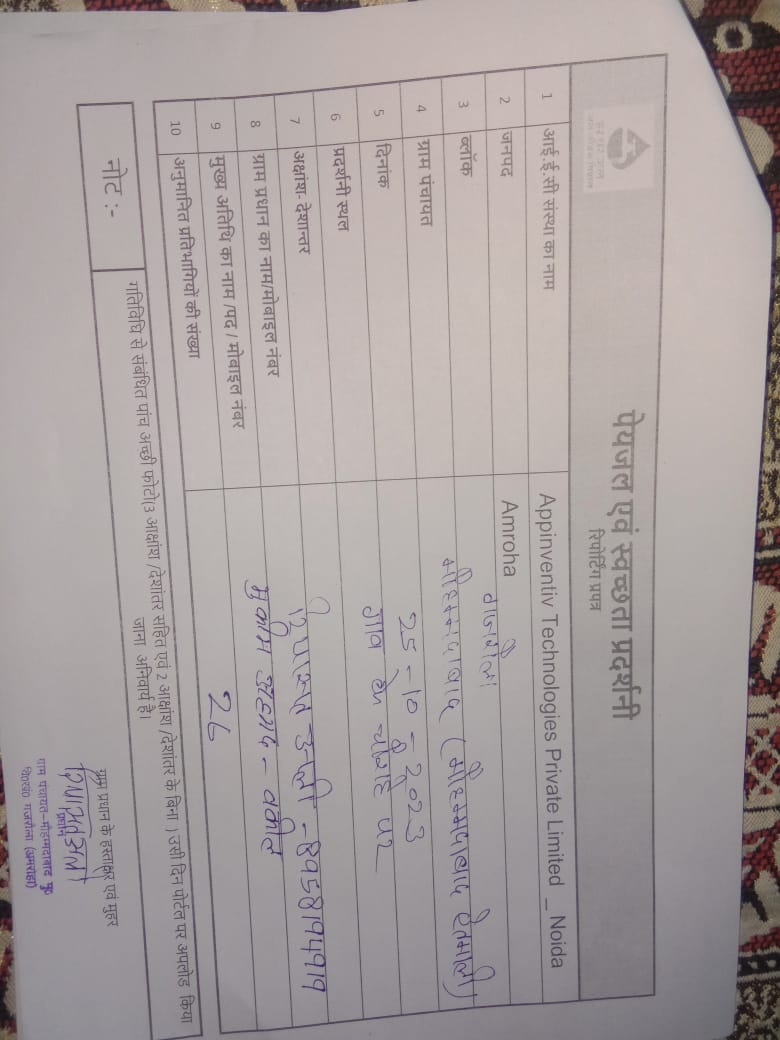 पेयजल एवं स्वच्छता प्रदर्शनी
रिपोर्टिंग प्रपत्र
1 आई.ई.सी संस्था का नाम Appinventiv Technologies Private Limited _ Noida
2 जनपद Amroha
3 ब्लॉक गजरौला
4 ग्राम पंचायत मौहम्मदाबाद (मौहम्मदाबाद ऐतमाली)
5 दिनांक 25-10-2023
6 प्रदर्शनी स्थल गाव के चौराहे पर
7 आक्षांश- देशान्तर
8 ग्राम प्रधान का नाम/मोबाइल नंबर
9 मुख्य अतिथि का नाम /पद / मोबाइल नंबर मुकीम अहमद -
10 अनुमानित प्रतिभागियों की संख्या 26
नोट :- गतिविधि से संबंधित पांच अच्छी फोटो(3 आक्षांश /देशांतर सहित एवं 2 आक्षांश /देशांतर के बिना ) उसी दिन पोर्टल पर अपलोड किया
जाना अनिवार्य है।
ग्राम प्रधान के हस्ताक्षर एवं मुहर
प्रधान
ग्राम पंचायत-मौहम्मदाबाद
वि०ख० गजरौला (अमरोहा)